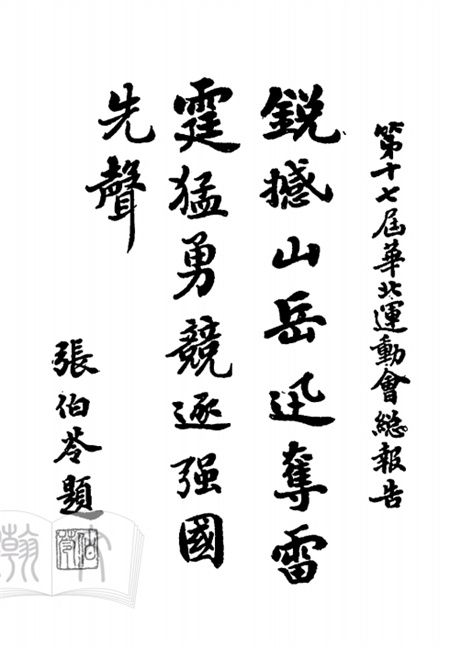 第十七屆華北運動會總報告
銳撼山岳迅奪雷
霆猛勇競逐强國
先聲
張伯苓題
伯苓
瀚文